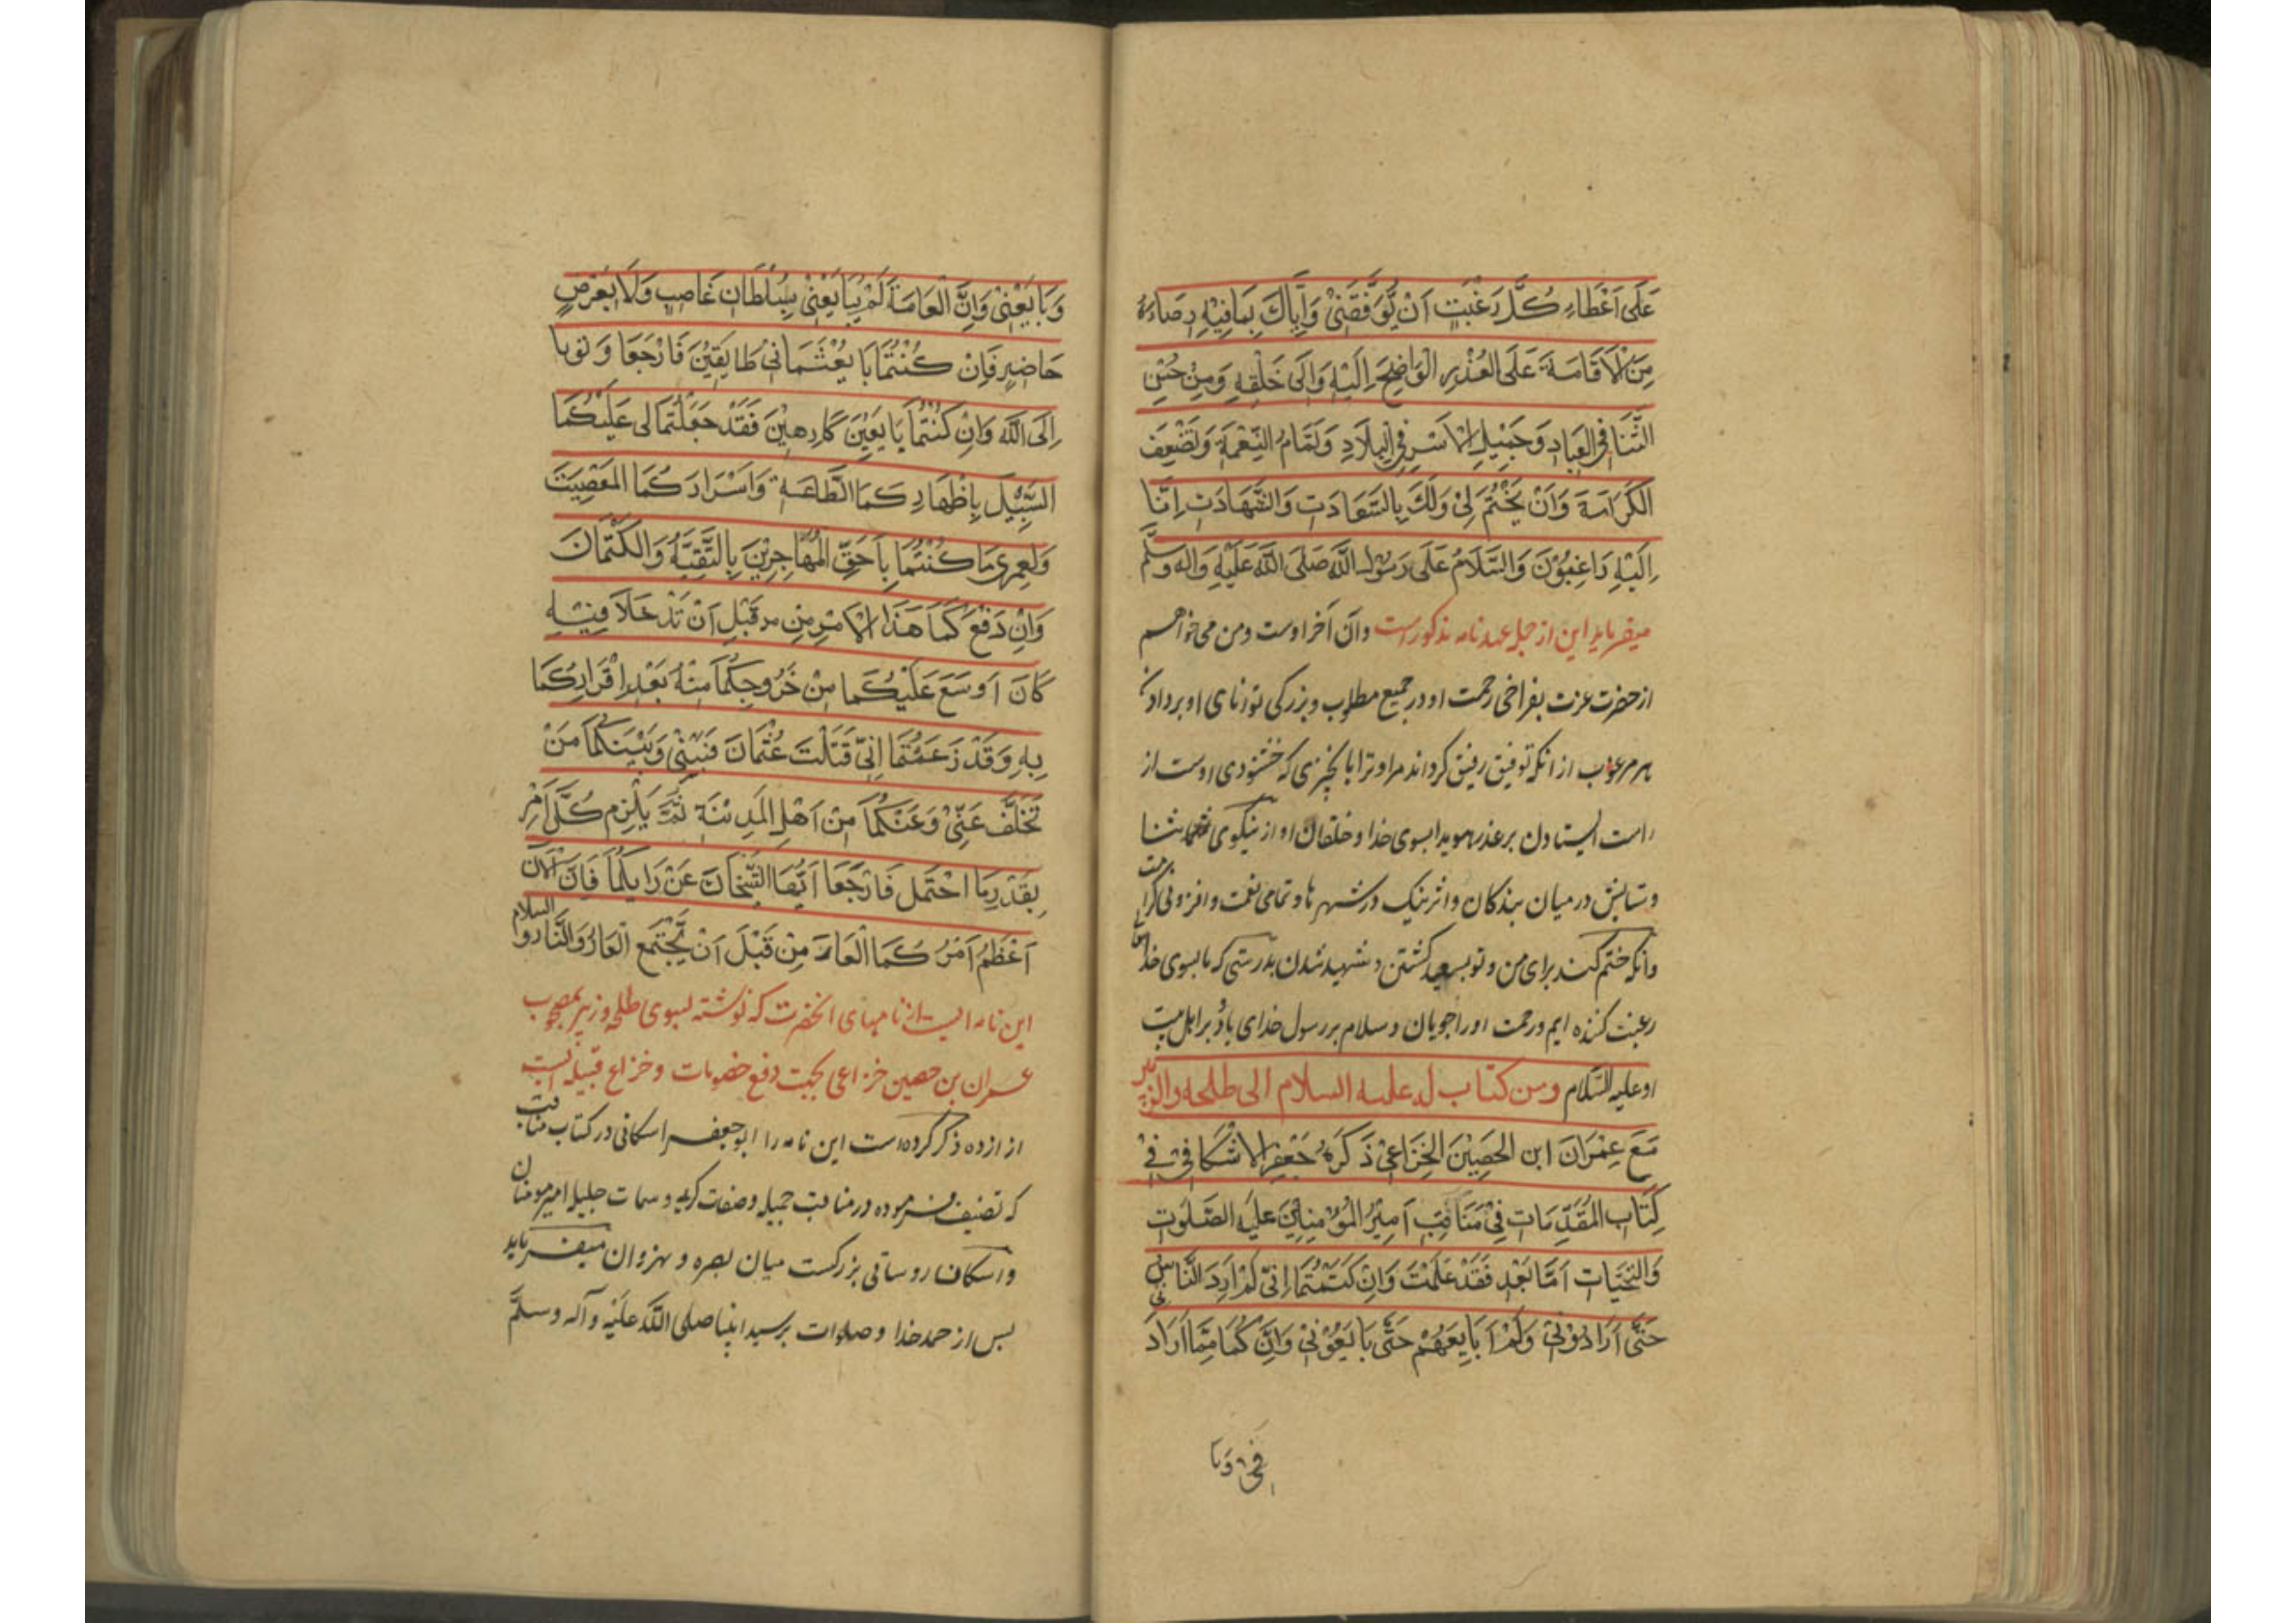 عَلَى اَعْطَاءِ كُلِّ رَغْبَتٍ اَنْ يُّوَفِّقَنِىْ وَاِيَّاكَ بِمَا فِيْهِ رِضَاءُهُ
مِنَ الْاَقَامَةَ عَلَى الْعُذْرِ الْوَاضِحِ اِلَيْهِ وَاِلَى خَلْقِهِ وَمِنْ حُسْنِ
الثَّنَا فِى الْعِبَادِ وَجَمِيْلِ الْاَسْرِ فِى الْبِلَادِ وَتَمَامُ النِّعْمَةِ وَتَضْعِيْفَ
الْكَرَامَةَ وَاَنْ يَخْتُمَ لِىْ وَلَكَ بِالسَّعَادَتِ وَالشَّهَادَتِ اِنَّا
اِلَيْهِ رَاغِبُوْنَ وَالسَّلَامُ عَلَى رَسُوْلِ اللَّهِ صَلَّى اللَّهُ عَلَيْهِ وَالِهِ وسلّم
ميفرمايد اين از جمله عهد نامه مذكور است وان آخر اوست ومن مى خواهم
از حضرت عزت بفراخى رحمت او در جميع مطلوب وبزركى توانائى او بر دادن
هر مرغوب از انكه توفيق رفيق كرداند مرا وترا بانچيزى كه خشنودى اوست از
راست ايستادن بر عذر هويدا بسوى خدا وخلقان او از نيكوى ثنا
وستايش درميان بندكان واثر نيك در شهر ها وتمامى نعمت وافزونى كرامت
وانكه ختم كند براى من وتو بسعيد كشتن وشهيد شدن بدرستى كه ما بسوى خدا
رغبت كننده ايم ورحمت او را جويان وسلام بر رسول خداى باد وبر اهل بيت
او عليه السّلام ومن كتاب له عليه السلام الى طلحه والزبير
مَعَ عِمْرَانَ ابن الحَصِيْنَ الخِزَاعِىْ ذَكَرَهُ جَعْفَر الاَسْكَافِىْ فِىْ
كِتَابِ المُقَدِّمَات فِىْ مَنَاقِبِ اَمِيْرُ المُؤْمِنِيْنَ عَلَيْهِ الصَّلَوٰت
وَالتَّحِيَّات اَمَّا بَعْدِ فَقَدْ عَلَمْتَ وَاِنْ كَتَمْتُمَا اِنِّىْ لَمْ اَرِدَ النَّاسَ
حَتَّى اَرَادُوْنِىْ وَلَمْ اَبَايِعَهُمْ حَتَّى بَايَعُوْنِىْ وَاِنَّكُمَا مِمَّا اَرَادَ
نِىْ وَبَا
وَبَايَعْنِىْ وَاِنَّ الْعَامَةَ لَمْ يُبَايَعْنِىْ بِسُلْطَانٍ غَاصِبٍ وَلَا بَعْرَضٍ
حَاضِرٍ فَاِنْ كُنْتُمَا بَايَعْتُمَانِىْ طَايِعَيْنَ فَارْجَعَا وَتوبا
اِلَى اللّٰه وَاِنْ كُنْتُمَا بَايَعَيْنَ كَارِهِيْنَ فَقَدْ جَعَلْتُمَا لى عَلَيْكُمَا
السَّبِيْلَ بِاِظْهَارِكمَا الطَّاعَةِ وَاَسْرَارَكُمَا المَعْصِيَت
وَلَعمرى مَا كُنْتُمَا بِاَحَقِّ المُهَاجِرِيْنَ بِالتَّقِيَّةِ وَالكَتْمَانَ
وَاِنْ دَفَعَكُمَا هَذَا الْاَمْرِ مِنْ قَبْلِ اَنْ تَدْخَلَا فِيْهِ
كَانَ اَوسَعَ عَلَيْكُمَا مِنْ خُرُوجِكُمَا مِنْهُ بَعْدِ اِقْرَارِكُمَا
بِهِ وَقَدْ زَعَمْتُمَا اِنِّىْ قَتَلْتَ عُثْمَانَ فَبَيْنِىْ وَبَيْنَكُمَا مَنْ
تَخَلَّفَ عَنِّىْ وَعَنْكُمَا مِنْ اَهْلِ المَدِيْنَةِ ثُمَّ يَلْزِم كُلَّ اَمْرِ
بِقَدْرِ مَا احْتَمَل فَارْجَعَا اَيُّهَا الشَّيْخَانَ عَنْ رَايكُمَا فَاِنَّ الْاٰنَ
اَعْظَمُ اَمْرُكُمَا الْعَارَ مِنْ قَبْلَ اَنْ يَّجْتَمِعَ الْعَارُ وَالنَّار والسلام
اين نامه ايست از نامهاى انحضرت كه نوشته بسوى طلحه وزبير بمصحوب
عمران بن حصين خزاعى بجهت دفع خصومات وخزاع قبيله ايست
از ازده ذكر كرده است اين نامه را ابو جعفر اسكافى در كتاب مناقب
كه تصنيف فرموده در مناقب جميله وصفات كريمه وسمات جليله امير مومنان
واسكاف روستائى بزركست ميان بصره ونهروان ميفرمايد
پس از حمد خدا وصلوات بر سيد انبيا صلى اللّٰه عَلَيْهِ وآله وسلَّم